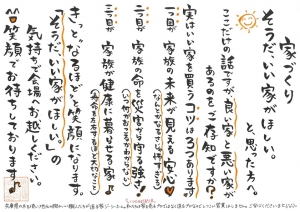 家づくり
そうだ、いい家がほしい。
と、思った方へ。
ここだけの話ですが、良い家と悪い家が
あるのをご存知ですか?
実はいい家を買うコツは3つあります
一つ目が 家族の未来が見える安心
二つ目が 家族の命を災害から守る強さ!
三つ目が 家族が健康に暮せる家♪
きっと"なるほど"と笑顔になります。
「そうだ、いい家がほしい。」の
気持ちで会場へお越しください。
笑顔でお待ちしております